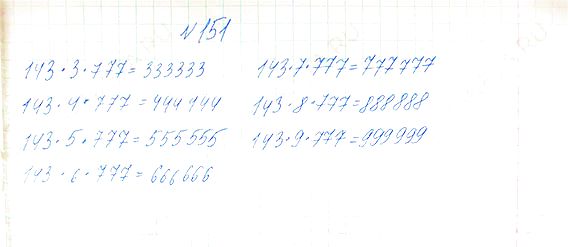 №151
143·3·777=333333
143·4·777=444444
143·5·777=555555
143·6·777=666666
143·7·777=777777
143·8·777=888888
143·9·777=999999